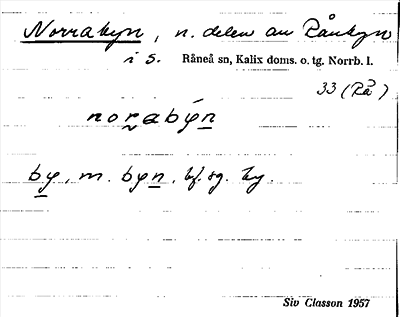 Norrabyn, n. delen av Rånbyn
i s. Råneå sn, Kalix doms. o. tg. Norrb. l.
33 (Rå)
norabýn
by, m. byn, bf. sg.
Siv Classon 1957